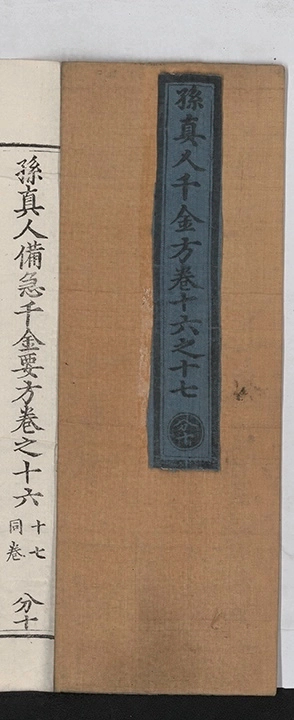 孫真人千金方卷十六之十七
分十
孫真人備急千金要方卷之十六
十七
同卷
分十